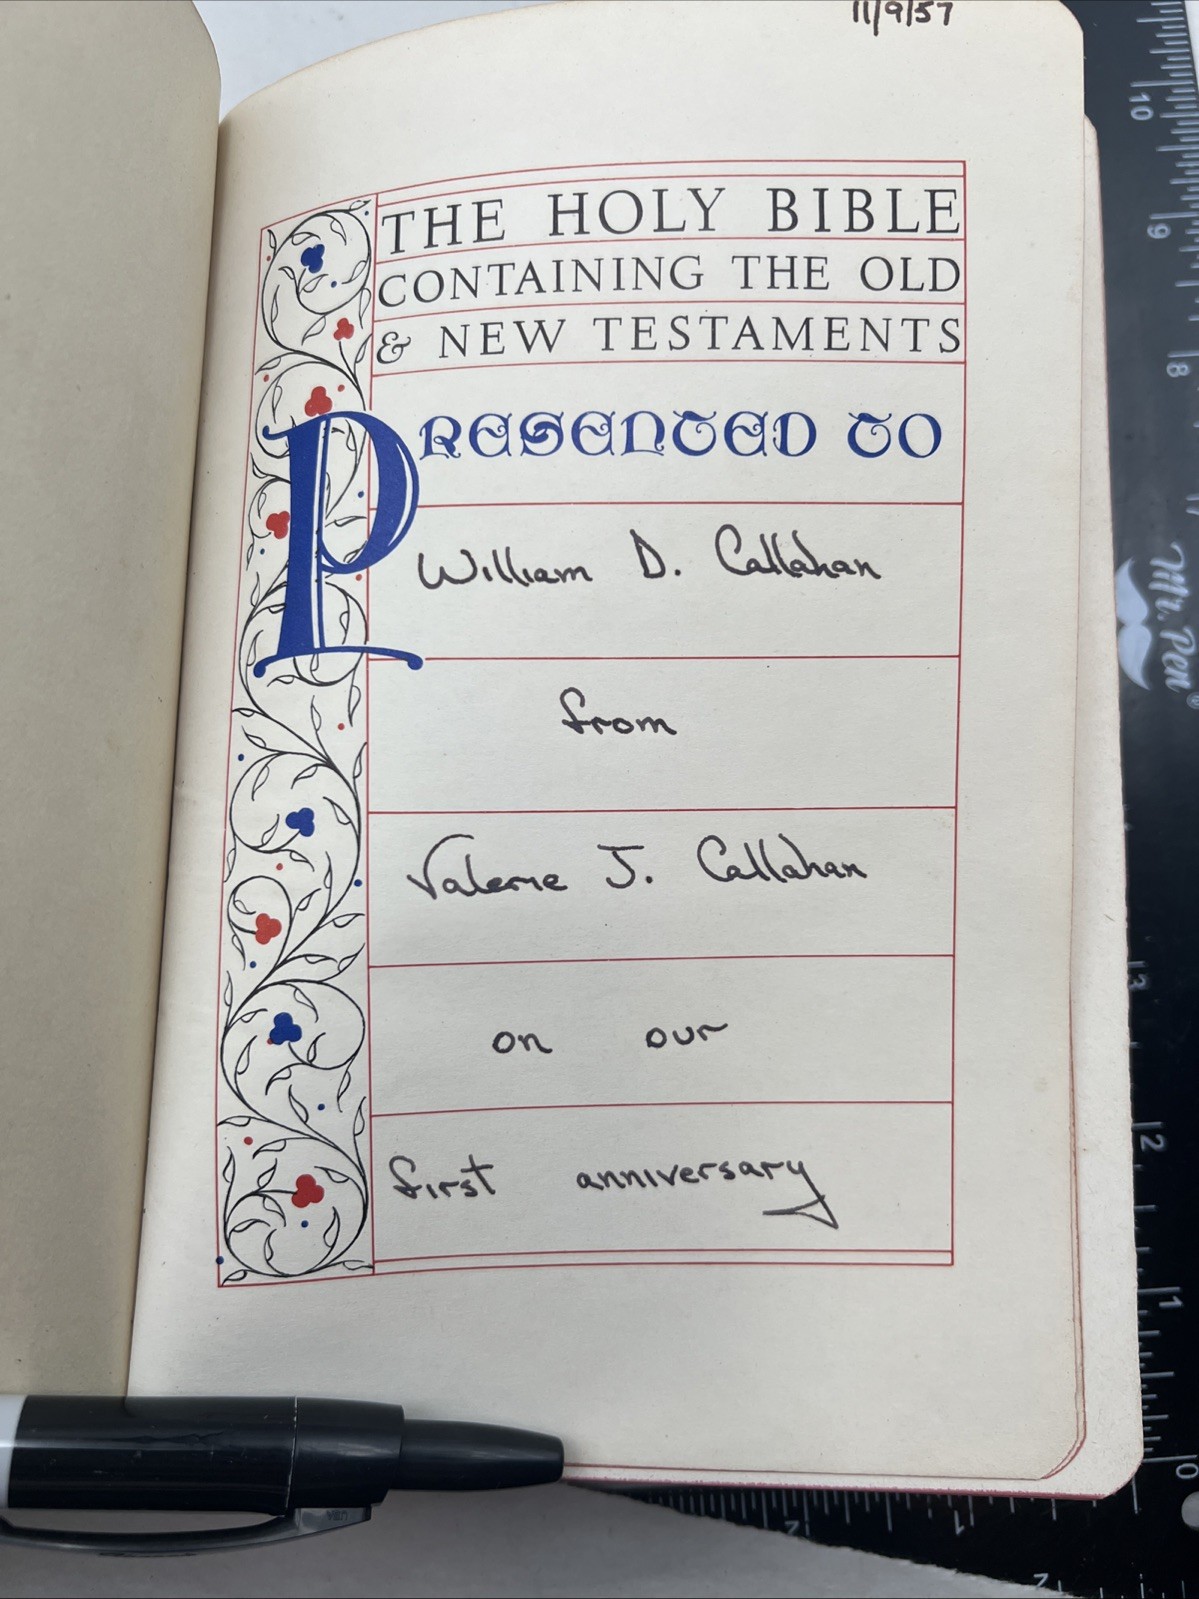 11/9/57
THE HOLY BIBLE
CONTAINING THE OLD
& NEW TESTAMENTS
PRESENTED TO
William D. Callahan
from
Valerie J. Callahan
on our
first anniversary
Mr. Pen®
10
9
8
7
3
2
1
0
1
2
2